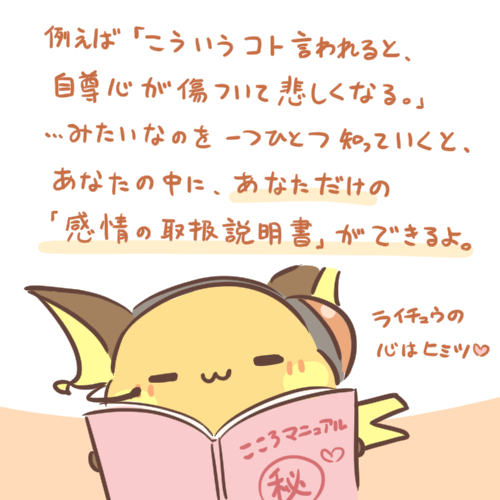 例えば「こういうコト言われると、
自尊心が傷ついて悲しくなる。」
…みたいなのを一つひとつ知っていくと、
あなたの中に、あなただけの
「感情の取扱説明書」ができるよ。
ライチュウの
心はヒミツ♡
こころマニュアル
♡
秘